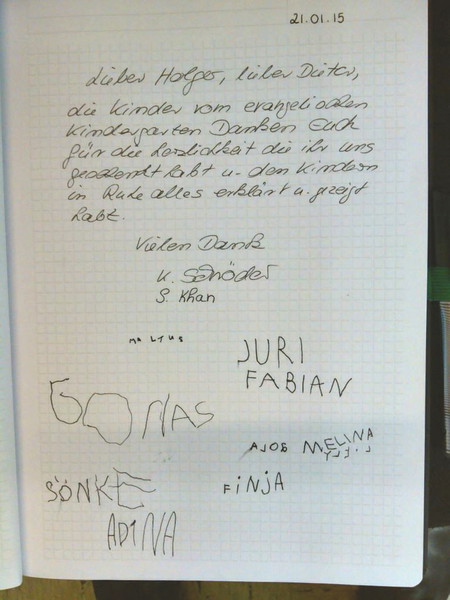 21.01.15
Lieber Holger, lieber Dieter,
die Kinder vom evangelischen
Kindergarten Danken Euch
für die Herzlichkeit die ihr uns
geschenkt habt u. den Kindern
in Ruhe alles erklärt u. gezeigt
habt.
Vielen Dank
K. Schöder
S. Khan
MALTUS
JURI
FABIAN
GONAS
MELINA
SÖNKE
FiNjA
ADINA